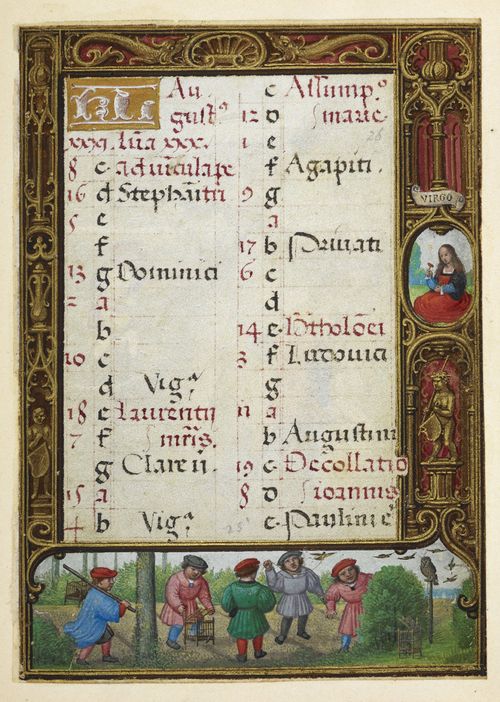 KL Au
gustꝰ
xxxi. lūa xxx.
8 c ad vincula pe
16 d Stephani
5 e
f
13 g Dominici
2 a
b
10 c
d Vigᵃ
18 e Laurentii
7 f Mris.
g Clare ii.
15 a
4 b Vigᵃ
c Assumpº
12 d Marie
1 e
f Agapiti.
9 g
a
17 b Priuati
6 c
d
14 e Btholoei
3 f Ludouici
g
11 a
b Augustini
19 c Decollatio
8 d Ioannis
e Paulini e
VIRGO